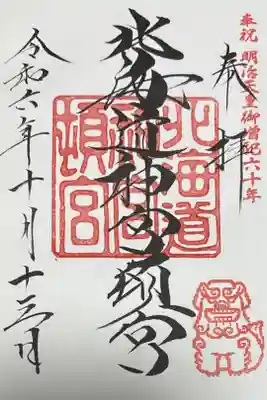 奉祝 明治天皇御増祀六十年
奉拝
北海道神宮頓宮
北海道
神宮
頓宮
令和六年十月十三日